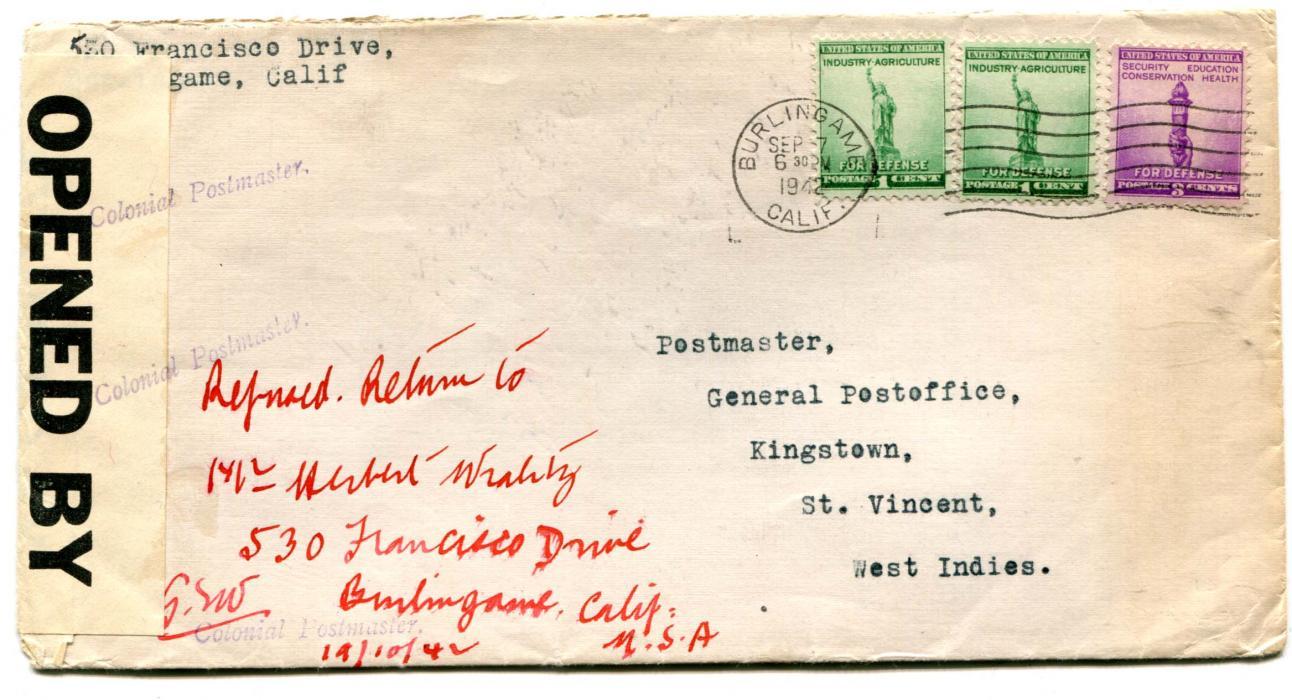 530 Francisco Drive,
game, Calif
OPENED BY
Colonial Postmaster.
Colonial Postmaster.
Colonial Postmaster.
UNITED STATES OF AMERICA
INDUSTRY-AGRICULTURE
FOR DEFENSE
POSTAGE 1 CENT
UNITED STATES OF AMERICA
INDUSTRY-AGRICULTURE
FOR DEFENSE
POSTAGE 1 CENT
UNITED STATES OF AMERICA
SECURITY EDUCATION
CONSERVATION HEALTH
FOR DEFENSE
POSTAGE 3 CENTS
BURLINGAME
SEP 7
6 30 PM
1942
CALIF.
Postmaster,
General Postoffice,
Kingstown,
St. Vincent,
West Indies.
Refused. Return to
Mr Herbert
530 Francisco Drive
Burlingame, Calif:
U.S.A
19/10/42